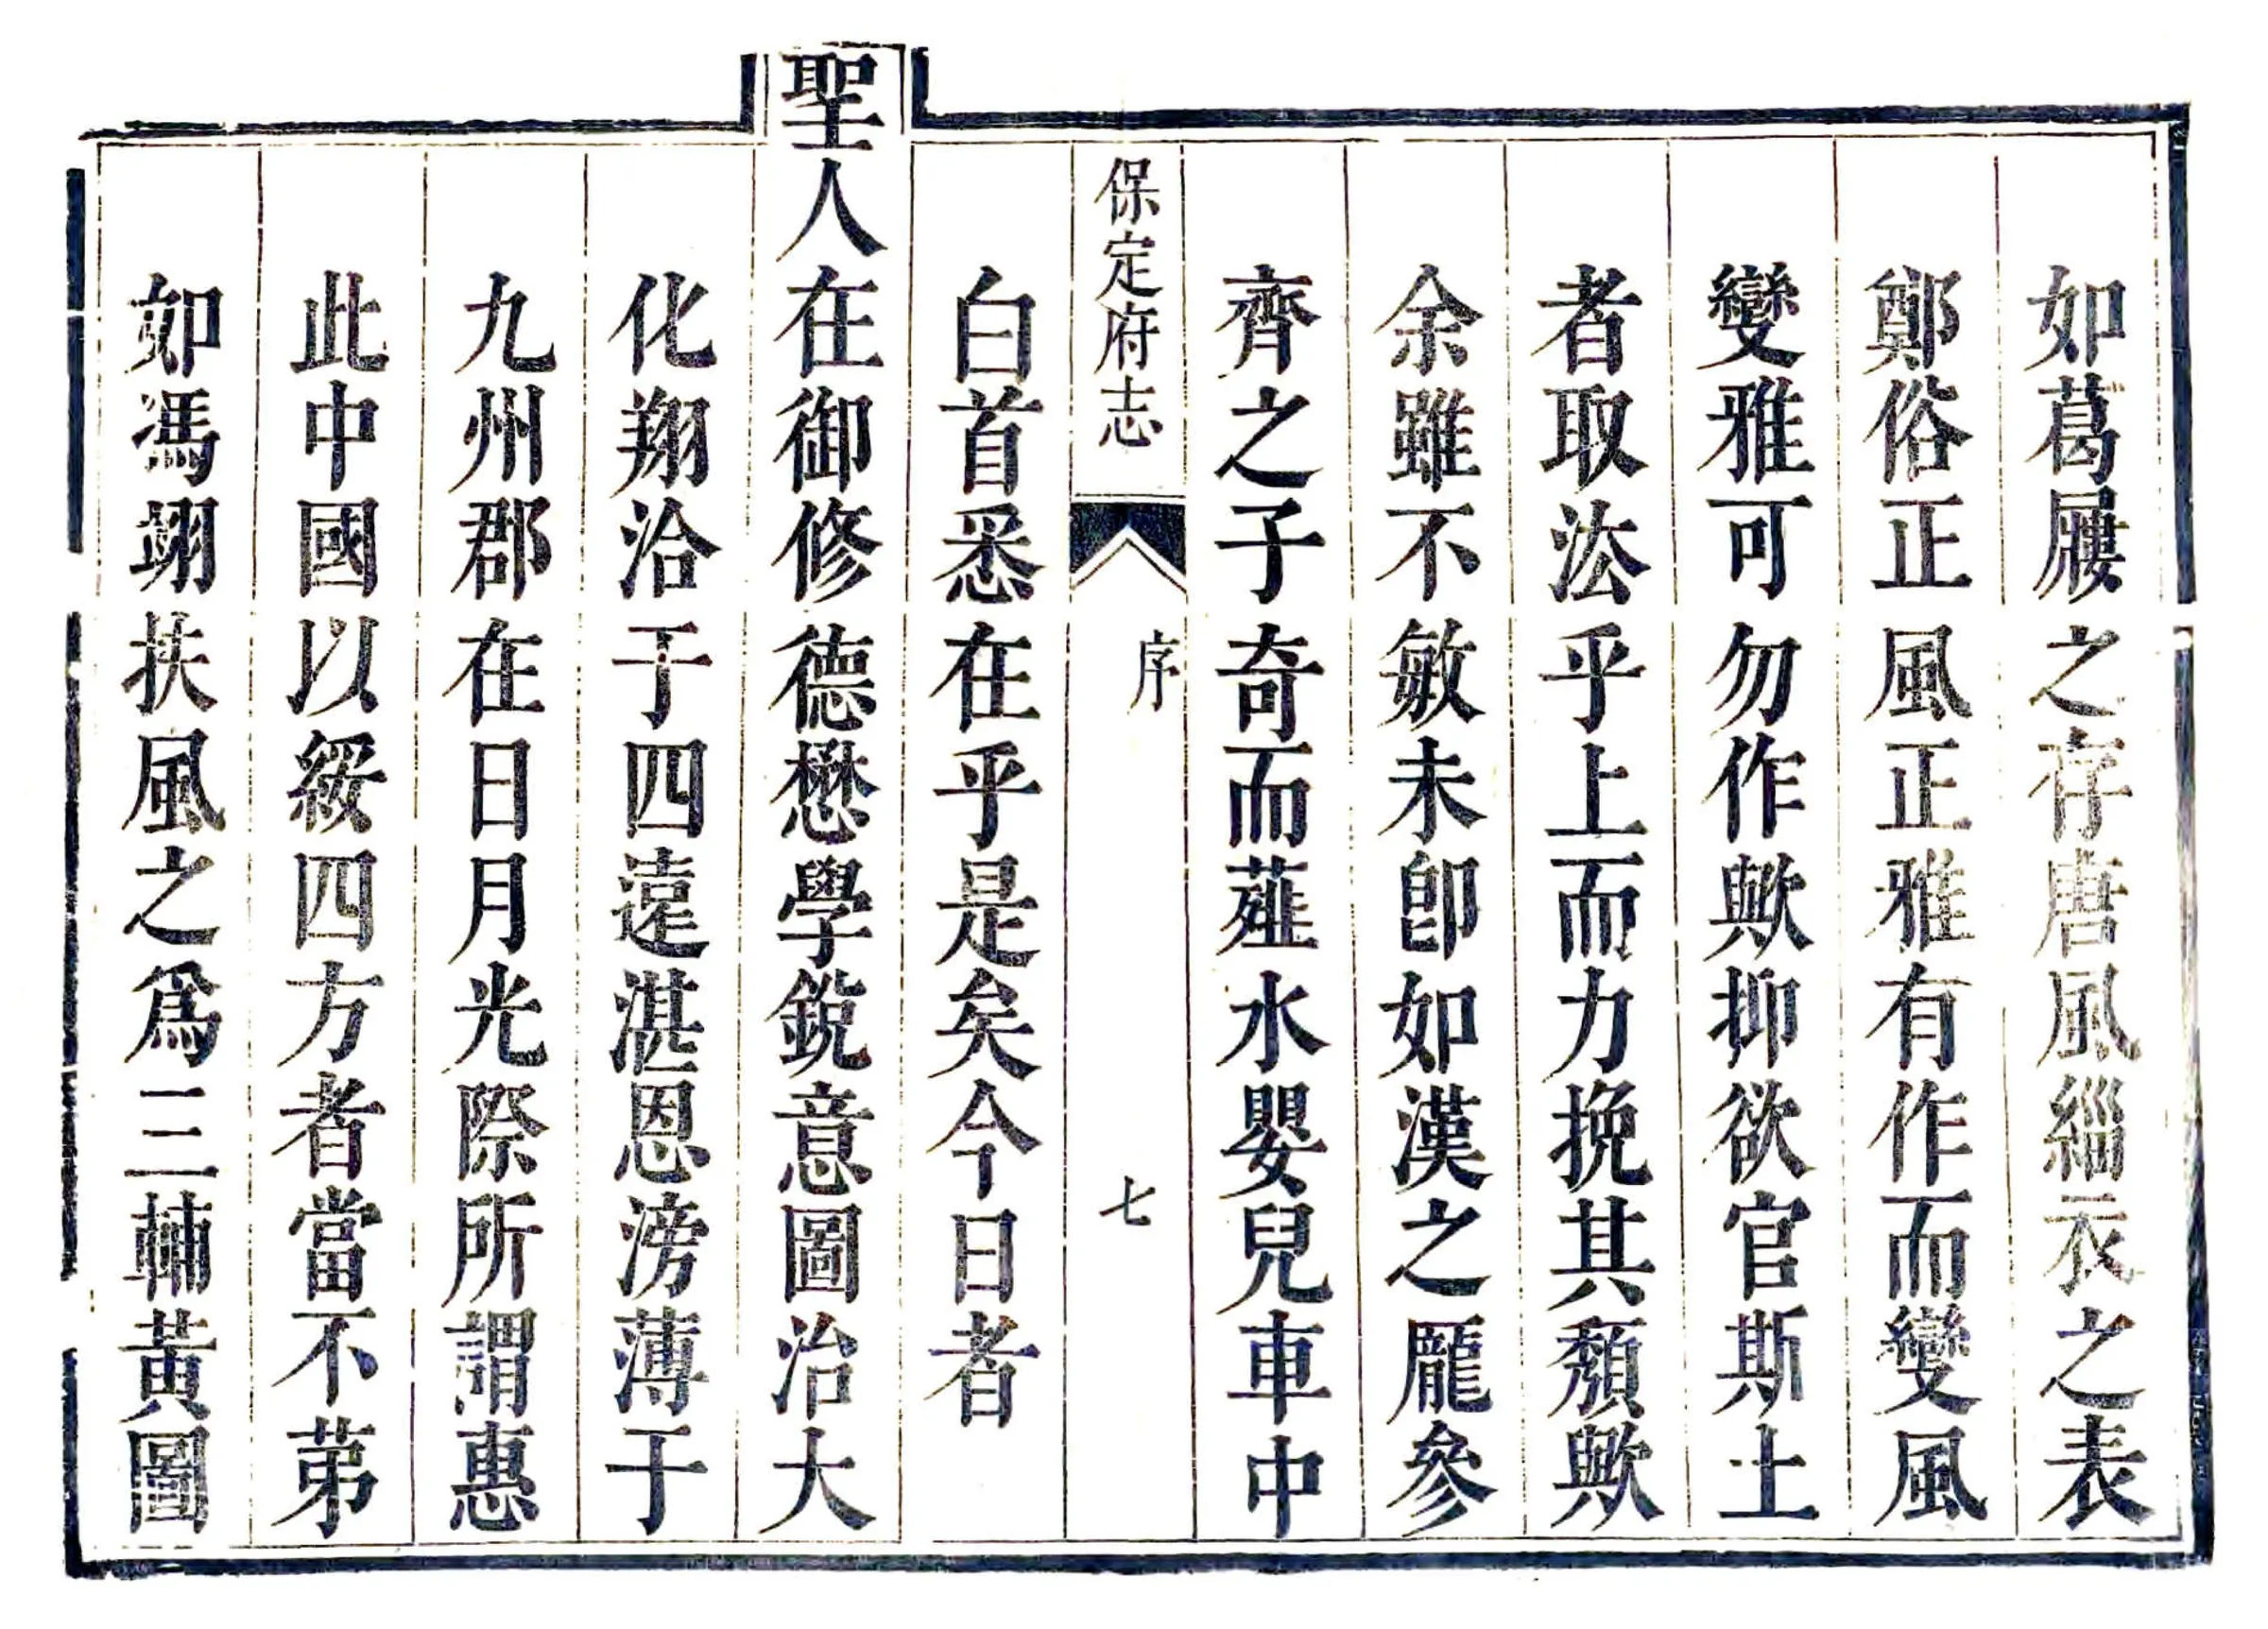 如葛屨之存唐風緇衣之表
鄭俗正風正雅有作而變風
變雅可勿作歟抑欲官斯土
者取法乎上而力挽其頹歟
余雖不敏未卽如漢之龐參
齊之子奇而薤水嬰兒車中
保定府志
序
七
白首悉在乎是矣今日者
聖人在御修德懋學銳意圖治大
化翔洽于四遠湛恩滂薄于
九州郡在日月光際所謂惠
此中國以綏四方者當不苐
如馮翊扶風之爲三輔黃圖